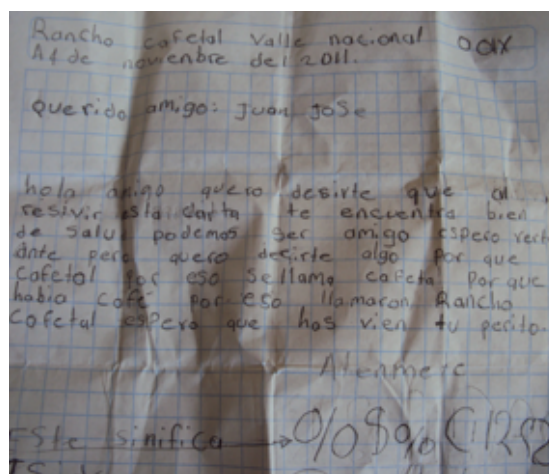 Rancho cafetal Valle nacional oax
A 4 de noviembre del 2011.
querido amigo: Juan Jose
hola amigo quero desirte que al
resivir esta carta te encuentre bien
de Salu podemos ser amigo espero vert
ante pero quero decirte algo por que
Cafetal por eso sellama cafeta porque
habia café por eso llamaron Rancho
Cafetal espero que has vien tu perito.
Atenmere
Este sinifica →